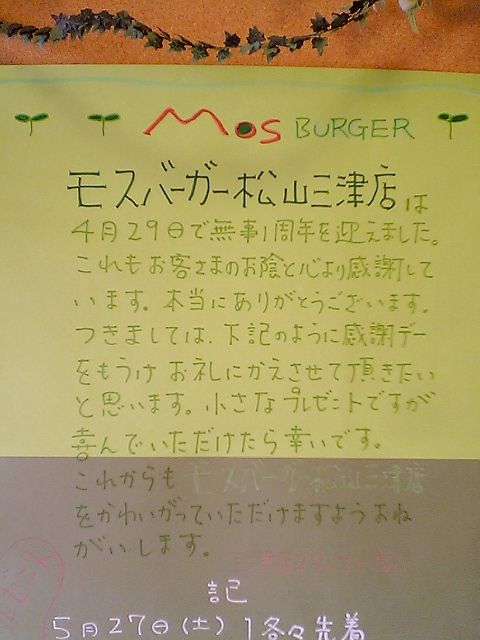 MOS BURGER
モスバーガー松山三津店は
4月29日で無事1周年を迎えました。
これもお客さまのお陰と心より感謝して
います。本当にありがとうございます。
つきましては、下記のように感謝デー
をもうけ お礼にかえさせて頂きたい
と思います。小さなプレゼントですが
喜んでいただけたら幸いです。
これからもモスバーガー松山三津店
をかわいがっていただけますようおね
がいします。
記
5月27日(土)